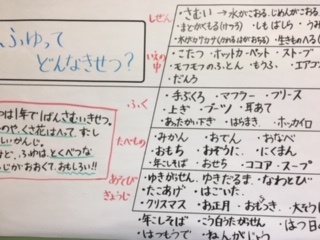 ふゆって
どんなきせつ?
ゆは1年で1ばんさむいきせつ。
さ花はへって、すこし
いかんじ。
ど、ふゆは、とくべつな
じがおおくて、おもしろい!!
しぜん
・さむい→水がこおる。じめんがこおる。
・まどがくもる(けつろ)・しもばしら・うみ
・木がカサカサ
いえの中
・こたつ・ホットカーペット・ストーブ
・モフモフのふとん・もうふ・エア
・だんろ
ふく
・手ぶくろ・マフラー・フリース
・上ぎ・ブーツ・耳あて
・あったか下ぎ・はらまき・ホッカイロ
たべもの
・みかん・おでん・おなべ
・おもち・おぞうに・にくまん
・年こしそば・おせち・ココア・スープ
あそび
ぎょうじ
・ゆきがっせん・ゆきだるま・なわとび
・たこあげ・はごいた
・クリスマス・お正月・おもちつき・大そうじ
・年こしそば・こう白うたがっせん・はつ日の
・はつもうで・ねんがじょう